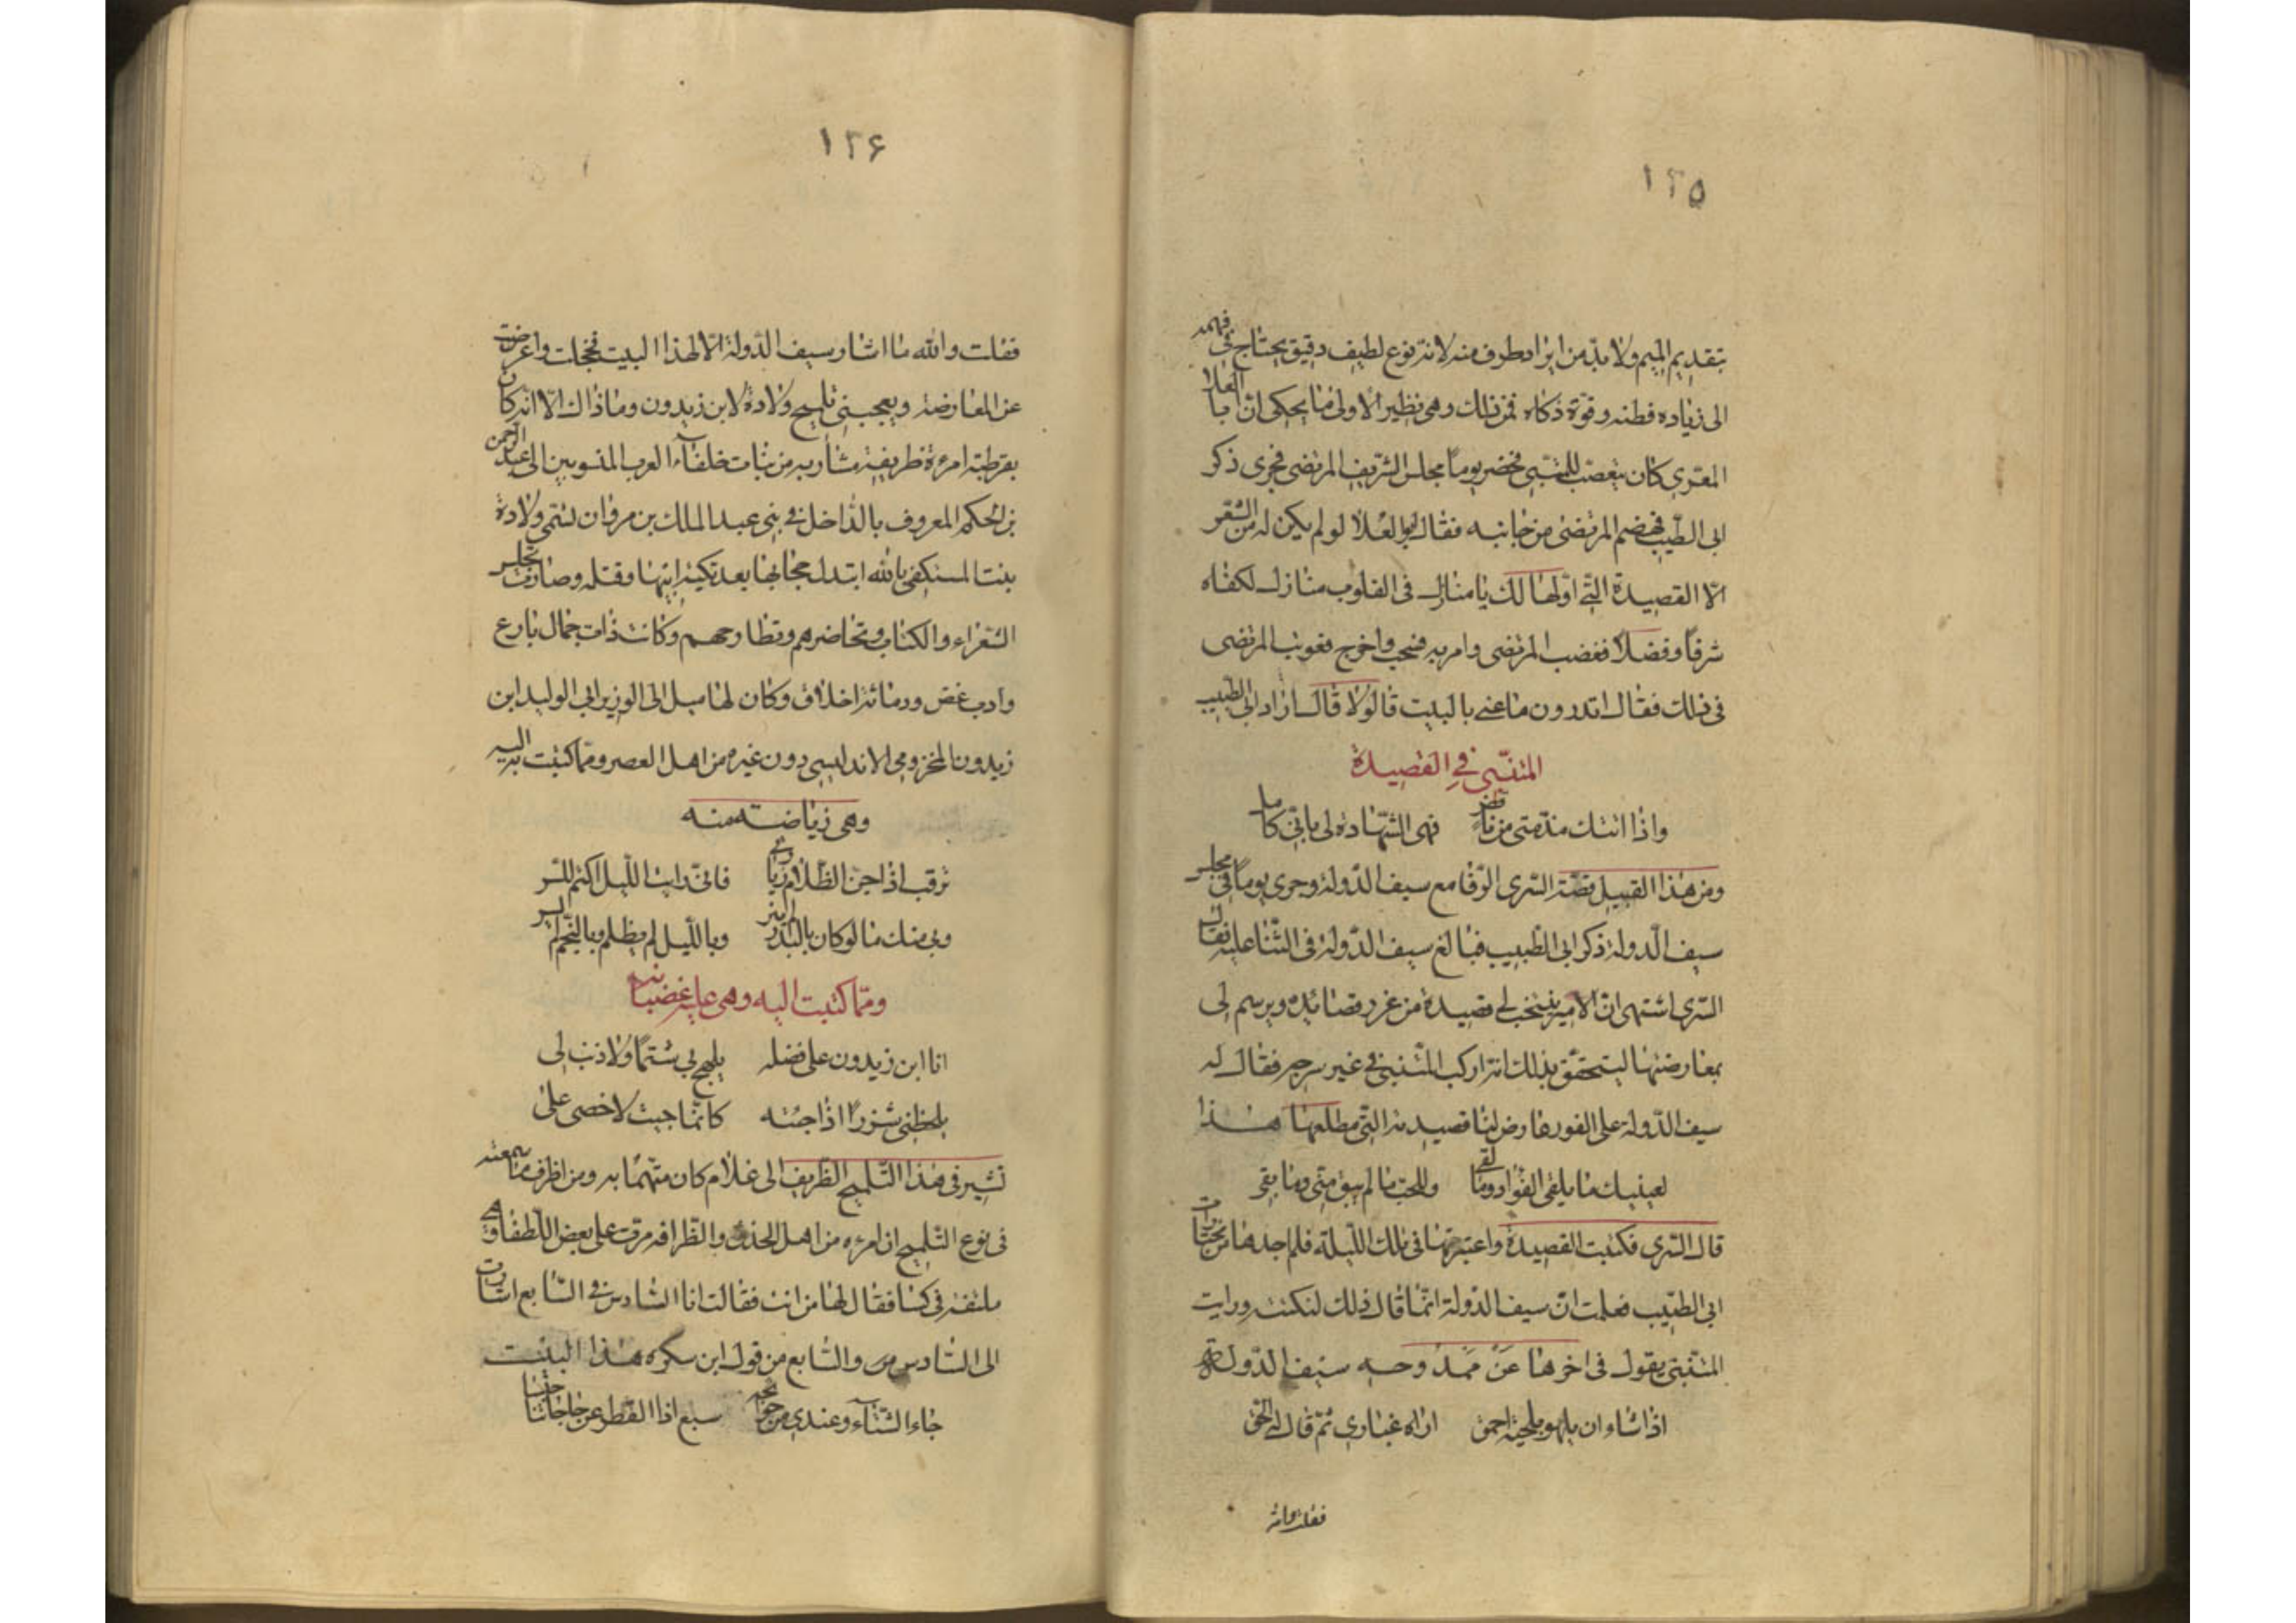 ١٢٥
بتقديم الميم ولا بدّ من ايراد طرف منه لانه نوع لطيف دقيق يحتاج فى فهمه
الى زياده فطنه وقوة ذكاء فمن ذلك وهى نظير الاولى ما يحكى انّ ابا العلا
المعرى كان يتعصّب للمتنبى فحضر يوماً مجلس الشريف المرتضى فجرى ذكر
ابى الطّيب فهضم المرتضى من جانبه فقال ابو العلا لو لم يكن له من الشعر
الّا القصيدة الّتى اوّلها لك يا منازل فى القلوب منازل لكفاه
شرفاً وفضلا فغضب المرتضى وامر به فسحب واخرج فعوتب المرتضى
فى ذلك فقال اتدرون ما عنى بالبيت قالوا لا قال اراد ابى الطيب
المتنبّى فى القصيدة
واذا اتتك مذمّتى من ناقص فهى الشّهادة لى بانّى كامل
ومن هذا القبيل قصّة السّرى الرّفا مع سيف الدّولة وجرى يوماً فى مجلس
سيف الدّوله ذكر ابى الطّيب فبالغ سيف الدّولة فى الثّنا عليه فقال
السّرى اشتهى انّ الامير ينتخب لى قصيدة من غرر قصائده ويرسم لى
بمعارضتها ليتحقّق بذلك انه اركب المتنبى فى غير سرجه فقال له
سيف الدّوله على الفور عارض لنا قصيدته الّتى مطلعها هذا
لعينيك ما يلقى الفؤاد وما لقى وللحبّ ما لم يبق منّى وما بقى
قال السّرى فكتبت القصيدة واعتبرتها فى تلك اللّيلة فلم اجدها من مختارات
ابى الطّيب فعلمت انّ سيف الدّولة انّما قال ذلك لنكتة ورايت
المتنبّى يقول فى اخرها عن ممدوحه سيف الدّوله
اذا شاء ان يلهو بلحية احمق اراه غبارى ثمّ قال له الحق
فقلت والله
١٢۶
فقلت والله ما اشار سيف الدّولة الّا لهذا البيت فخجلت واعرضت
عن المعارضة ويعجبنى تلميح ولادة لابن زيدون وما ذاك الّا انه كان
بقرطبة امرءة ظريفة من بنات خلفآء العرب المنسوبين الى عبد الرحمن
بن الحكم المعروف بالدّاخل فى بنى عبد الملك بن مروان تسمّى ولادة
بنت المستكفى بالله ابتدل حجابها بعد نكبة ابيها وقتله وصارت تجلس
الشعراء والكتاب وتحاضرهم وتطارحهم وكانت ذات جمال بارع
وادب غض ودماثة اخلاق وكان لها ميل الى الوزير ابى الوليد ابن
زيدون المخزومى الاندلسى دون غيره من اهل العصر وممّا كتبت به اليه
وهى رياضة منه
ترقب اذا جنّ الظّلام زيارتى فانّى رايت اللّيل اكتم للسّر
وبى منك ما لو كان بالبدر لم ينر وباللّيل لم يظلم وبالنّجم لم يسر
وممّا كتبت اليه وهى عليه غضبانه
انا ابن زيدون على فضله يلهج بى شتماً ولا ذنب لى
يلحظنى شزراً اذا جئته كانّما جيت لاخصى على
تشير فى هذا التّلميح الظّريف الى غلام كان متّهماً به ومن اظرف ما سمعته
فى نوع التّلميح ان امرءه من اهل الحذق والظّرافه مرّت على بعض اللّطفا وهى
ملتفة فى كسا فقال لها من انت فقالت انا السّادس فى السّابع اشارت
الى السّادس والسّابع من قول ابن سكره هذا البيت
جاء الشّتآء وعندى من حوائجه سبع اذا القطر عن حاجاتنا حبسا